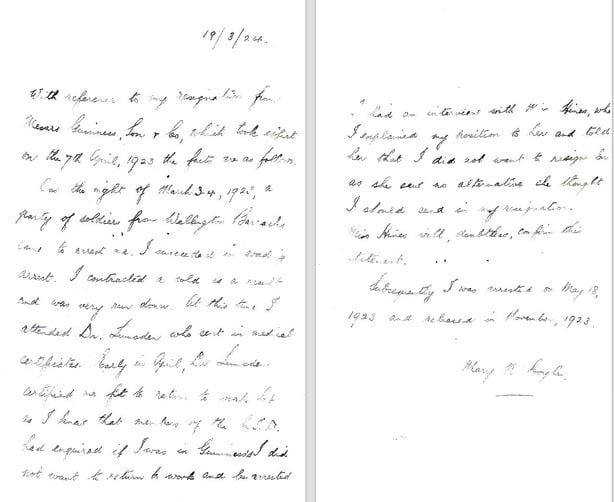 19/3/24.
With reference to my resignation from
Messrs Guinness, Son & Co, which took effect
on the 7th April, 1923 the facts are as follows.
On the night of March 3-4, 1923, a
party of soldiers from Wellington Barracks
came to arrest me. I succeeded in evading
arrest. I contracted a cold as a result
and was very run down. At this time I
attended Dr. Lumsden who sent in medical
certificates. Early in April, Dr Lumsden
certified me fit to return to work but
as I knew that members of the C.I.D.
had enquired if I was in Guinness's I did
not want to return to work and be arrested
I had an interview with Miss Hines, who
I explained my position to her and told
her that I did not want to resign but
as she saw no alternative she thought
I should send in my resignation.
Miss Hines will, doubtless, confirm this
statement.
Subsequently I was arrested on May 18,
1923 and released in November, 1923.
Mary